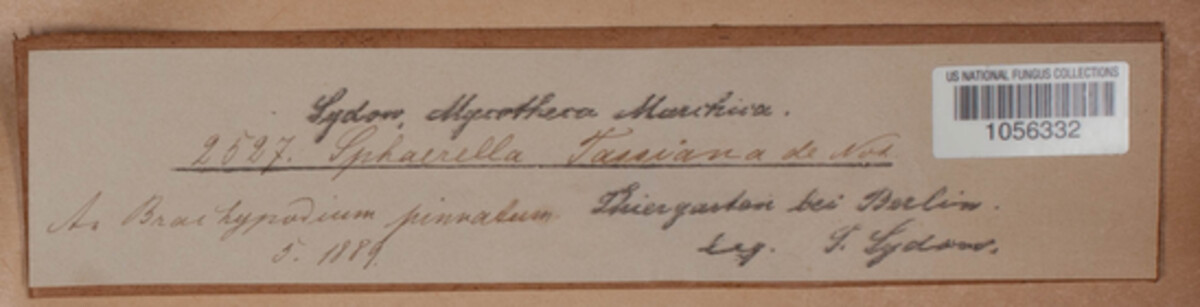 US NATIONAL FUNGUS COLLECTIONS
1056332
Sydow, Mycotheca Marchica.
2527. Sphaerella Tassiana de Not
An Brachypodium pinnatum Thiergarten bei Berlin.
5. 1889. leg. P. Sydow.